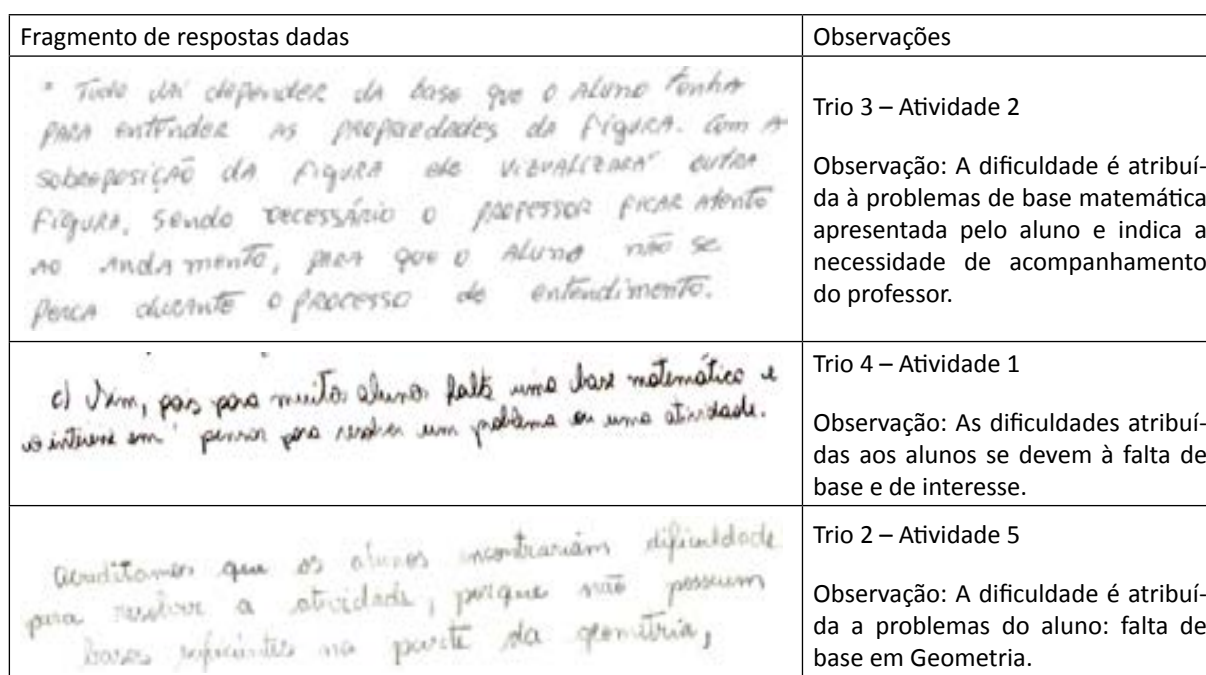 Fragmento de respostas dadas
Observações
" Tudo vai depender da base que o aluno tenha
para entender as propriedades da figura. Com a
sobreposição da figura ele vizualizará outra
figura, sendo necessário o professor ficar atento
ao andamento, para que o aluno não se
perca durante o processo de entendimento.
Trio 3 – Atividade 2
Observação: A dificuldade é atribuí-
da à problemas de base matemática
apresentada pelo aluno e indica a
necessidade de acompanhamento
do professor.
c) Sim, pois para muitos alunos falta uma base matemática e
o interesse em pensar para resolver um problema ou uma atividade.
Trio 4 – Atividade 1
Observação: As dificuldades atribuí-
das aos alunos se devem à falta de
base e de interesse.
Acreditamos que os alunos encontrariam dificuldade
para resolver a atividade, porque não possuem
bases suficientes na parte da geometria,
Trio 2 – Atividade 5
Observação: A dificuldade é atribuí-
da a problemas do aluno: falta de
base em Geometria.